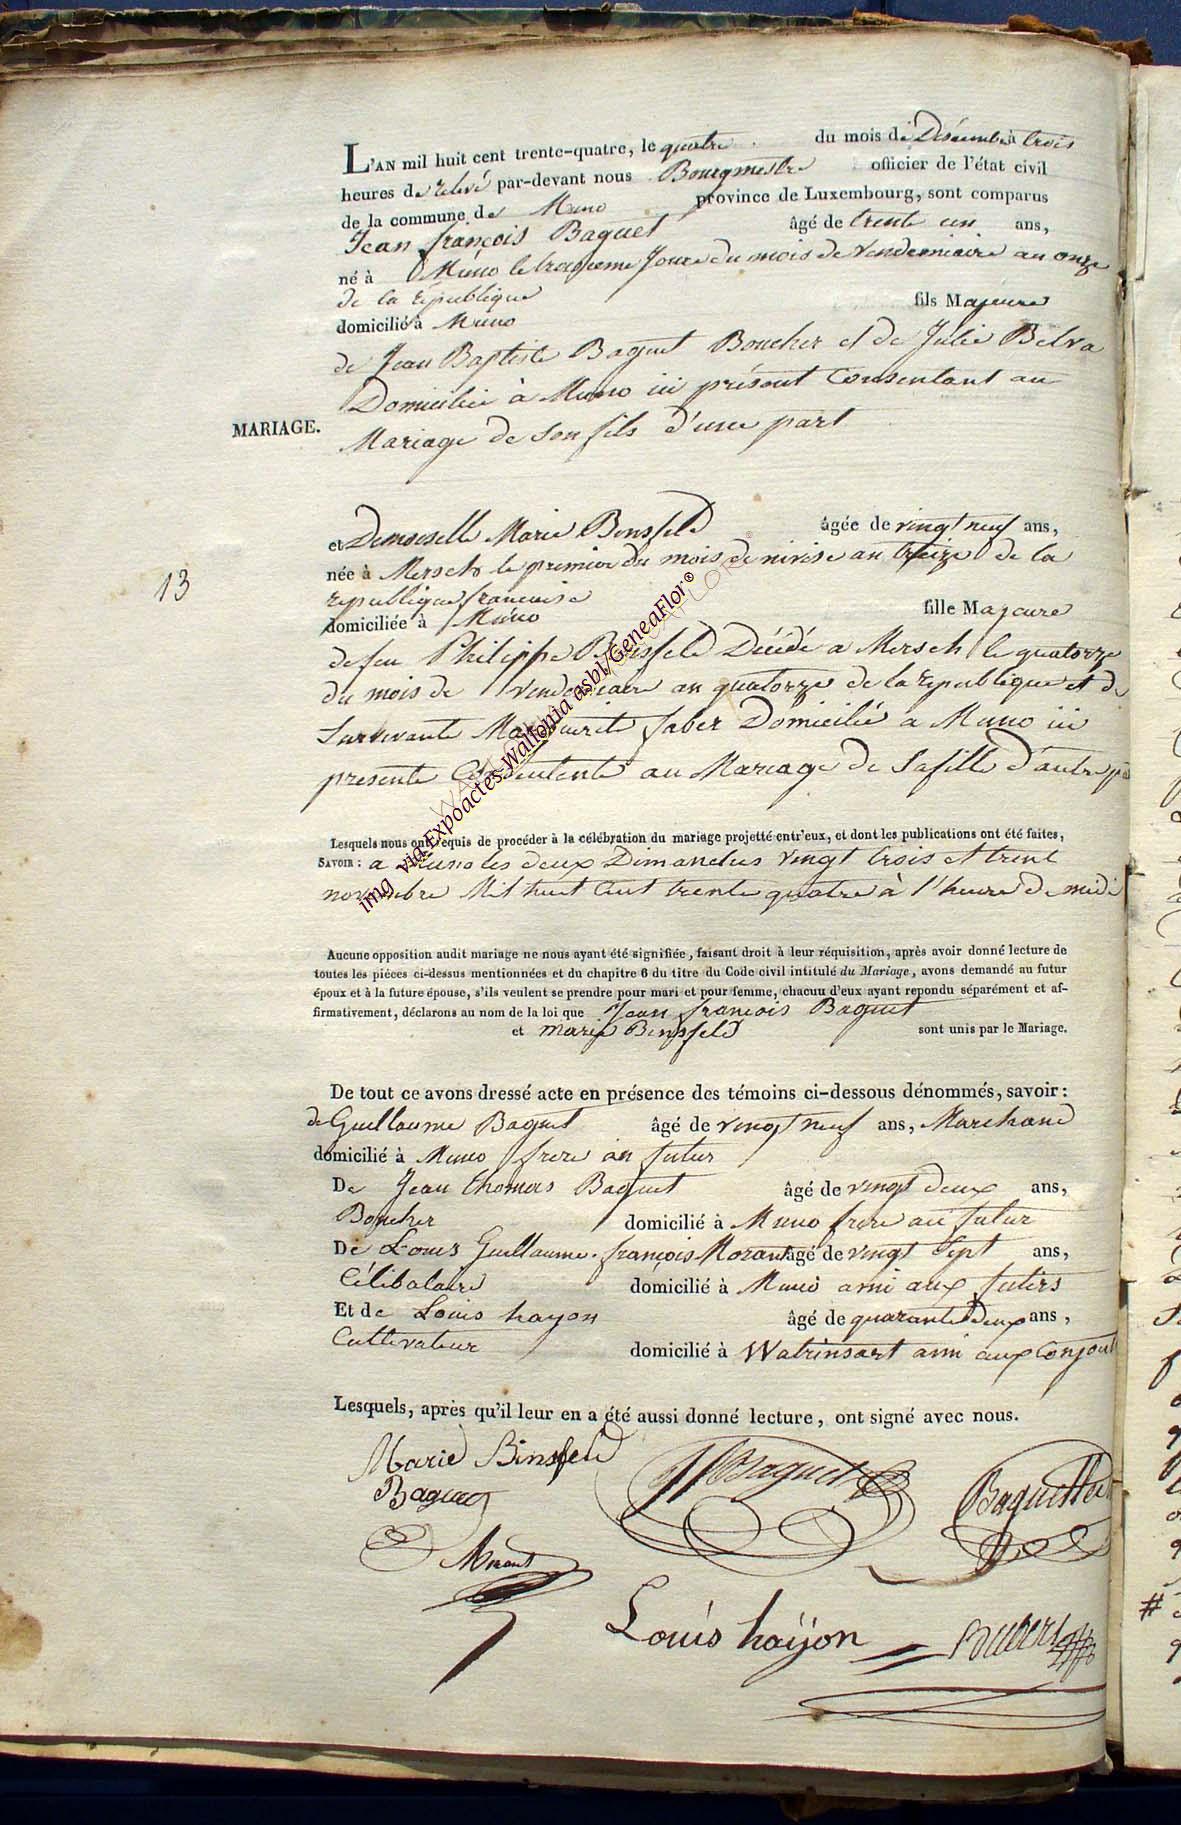 L'AN mil huit cent trente-quatre, le quatre du mois de Décembre à trois
heures de relevé par-devant nous Bourgmestre officier de l'état civil
de la commune de Muno province de Luxembourg, sont comparus
Jean françois Baguet âgé de trente un ans,
né à Muno le troisieme Jour du mois de vendemiaire an onze
de la république
domicilié à Muno fils Majeure
de Jean Baptiste Baguet Boucher et de Julie Belva
Domicilié à Muno ici présent Consentant au
MARIAGE.
Mariage de Son fils d'une part
et Demoiselle Marie Binsfeld âgée de vingt neuf ans,
13
née à Mersch le premier du mois de nivise an treize de la
republique francaise
domiciliée à Muno fille Majeure
de feu Philippe Binsfeld Décédé a Mersch le quatorze
du mois de Vendemiaire an quatorze de la republique et de
Survivante Marguerite faber Domicilié a Muno ici
presente Consentente au Mariage de Sa fille d'autre
Lesquels nous ont requis de procéder à la célébration du mariage projetté entr'eux, et dont les publications ont été faites,
SAVOIR : a Muno les deux Dimanches vingt trois et trent
novembre Mil huit Cent trente quatre à l'heure de midi
Aucune opposition audit mariage ne nous ayant été signifiée, faisant droit à leur réquisition, après avoir donné lecture de
toutes les piéces ci-dessus mentionnées et du chapitre 6 du titre du Code civil intitulé du Mariage, avons demandé au futur
époux et à la future épouse, s'ils veulent se prendre pour mari et pour femme, chacuu d'eux ayant repondu séparément et af-
firmativement, déclarons au nom de la loi que Jean francois Baguet
et marie Binsfeld sont unis par le Mariage.
De tout ce avons dressé acte en présence des témoins ci-dessous dénommés, savoir :
de Guillaume Baguet âgé de vingt neuf ans, Marchand
domicilié à Muno frere au futur
De Jean thomas Baguet âgé de vingt deux ans,
Boucher domicilié à Muno frere au futur
De Louis Guillaume françois Morant âgé de vingt Sept ans,
Célibataire domicilié à Muno ami aux futurs
Et de Louis hayon âgé de quarante Deux ans,
Cultivateur domicilié à Watrinsart ami aux Conjoult
Lesquels, après qu'il leur en a été aussi donné lecture, ont signé avec nous.
Marie Binsfeld
Baguet
Baguet
Morant
Louis haÿon
img via Expoactes-Wallonia asbl/GeneaFlor®